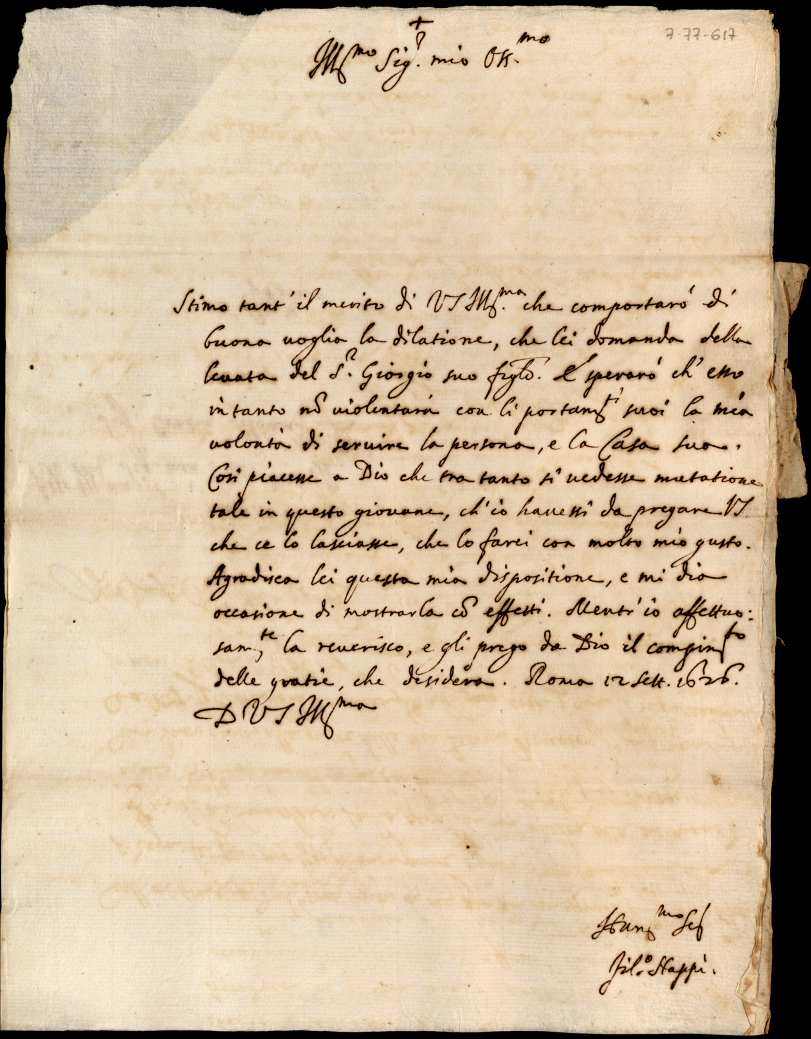 +
7-77-617
Ill.mo Sig.r mio Oss.mo
Stimo tant' il merito di VS Ill.ma che comportarò di
buona voglia la dilatione, che lei domanda della
levata del S.r Giorgio suo figlo. E sperarò ch' esso
in tanto nõ violentarà con li portam.ti suoi la mia
volontà di servire la persona, e la Casa sua.
Cosi piacesse a Dio che tra tanto si vedesse mutatione
tale in questo giovane, ch' io havessi da pregare VS
che ce lo lasciasse, che lo farei con molto mio gusto.
Agradisca lei questa mia dispositione, e mi dia
occasione di mostrarla cõ effetti. Mentr' io affettuo:
sam.te la reverisco, e gli prego da Dio il compim.to
delle gratie, che desidera. Roma 12 Sett. 1626.
D VS Ill.ma
Fil.o Nappi.